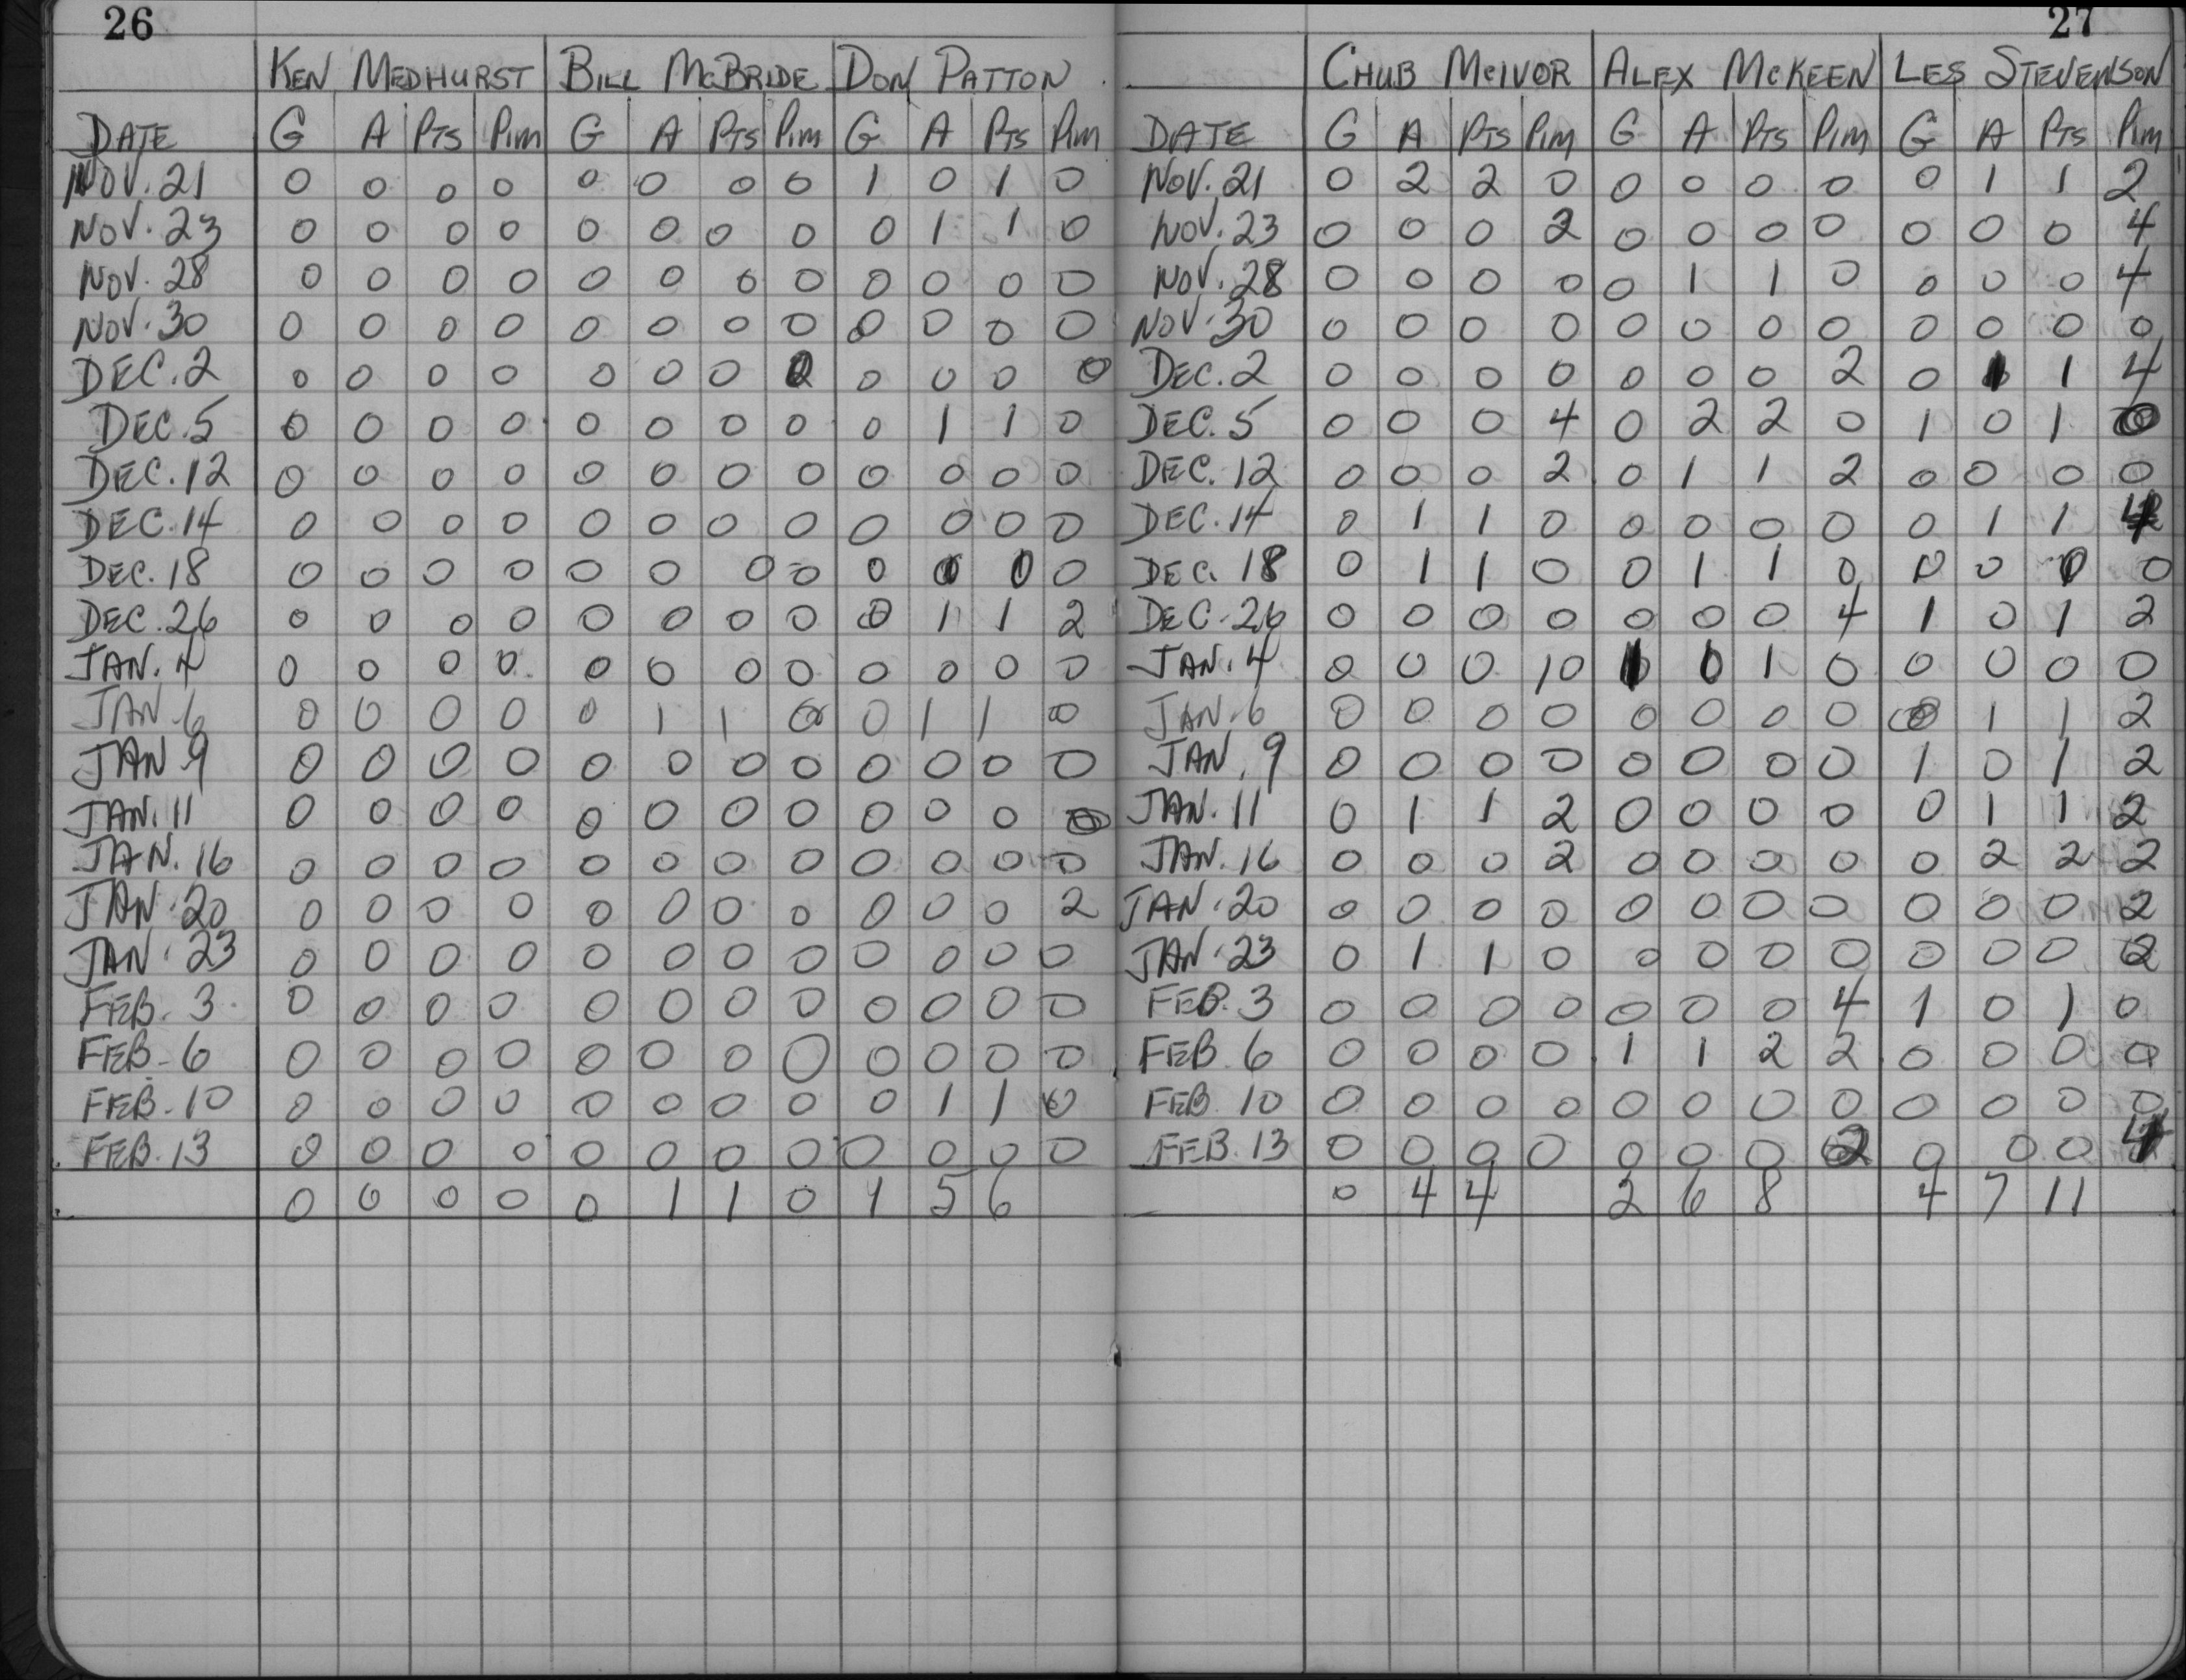 26
KEN MEDHURST BILL McBRIDE DON PATTON
DATE G A PTS PIM G A PTS PIM G A PTS PIM
NOV. 21 0 0 0 0 0 0 0 0 1 0 1 0
NOV. 23 0 0 0 0 0 0 0 0 0 1 1 0
NOV. 28 0 0 0 0 0 0 0 0 0 0 0 0
NOV. 30 0 0 0 0 0 0 0 0 0 0 0 0
DEC. 2 0 0 0 0 0 0 0 0 0 0 0
DEC. 5 0 0 0 0 0 0 0 0 0 1 1 0
DEC. 12 0 0 0 0 0 0 0 0 0 0 0 0
DEC. 14 0 0 0 0 0 0 0 0 0 0 0 0
DEC. 18 0 0 0 0 0 0 0 0 0 0
DEC. 26 0 0 0 0 0 0 0 0 0 1 1 2
JAN. 4 0 0 0 0 0 0 0 0 0 0 0 0
JAN. 6 0 0 0 0 0 1 1 0 0 1 1 0
JAN 9 0 0 0 0 0 0 0 0 0 0 0 0
JAN. 11 0 0 0 0 0 0 0 0 0 0 0 0
JAN. 16 0 0 0 0 0 0 0 0 0 0 0 0
JAN. 20 0 0 0 0 0 0 0 0 0 0 0 2
JAN. 23 0 0 0 0 0 0 0 0 0 0 0 0
FEB. 3 0 0 0 0 0 0 0 0 0 0 0 0
FEB. 6 0 0 0 0 0 0 0 0 0 0 0 0
FEB. 10 0 0 0 0 0 0 0 0 0 1 1 0
FEB. 13 0 0 0 0 0 0 0 0 0 0 0 0
0 0 0 0 0 1 1 0 1 5 6
27
CHUB McIVOR ALEX McKEEN LES STEVENSON
DATE G A PTS PIM G A PTS PIM G A PTS PIM
NOV. 21 0 2 2 0 0 0 0 0 0 1 1 2
NOV. 23 0 0 0 2 0 0 0 0 0 0 0 4
NOV. 28 0 0 0 0 0 1 1 0 0 0 0 4
NOV. 30 0 0 0 0 0 0 0 0 0 0 0 0
DEC. 2 0 0 0 0 0 0 0 2 0 1 1 4
DEC. 5 0 0 0 4 0 2 2 0 1 0 1 0
DEC. 12 0 0 0 2 0 1 1 2 0 0 0 0
DEC. 14 0 1 1 0 0 0 0 0 0 1 1
DEC. 18 0 1 1 0 0 1 1 0 0 0 0 0
DEC. 26 0 0 0 0 0 0 0 4 1 0 1 2
JAN. 4 0 0 0 10 1 0 1 0 0 0 0 0
JAN. 6 0 0 0 0 0 0 0 0 0 1 1 2
JAN. 9 0 0 0 0 0 0 0 0 1 0 1 2
JAN. 11 0 1 1 2 0 0 0 0 0 1 1 2
JAN. 16 0 0 0 2 0 0 0 0 0 2 2 2
JAN. 20 0 0 0 0 0 0 0 0 0 0 0 2
JAN. 23 0 1 1 0 0 0 0 0 0 0 0 2
FEB. 3 0 0 0 0 0 0 0 4 1 0 1 0
FEB. 6 0 0 0 0 1 1 2 2 0 0 0 0
FEB. 10 0 0 0 0 0 0 0 0 0 0 0 0
FEB. 13 0 0 0 0 0 0 0 2 0 0 0 4
0 4 4 2 6 8 4 7 11